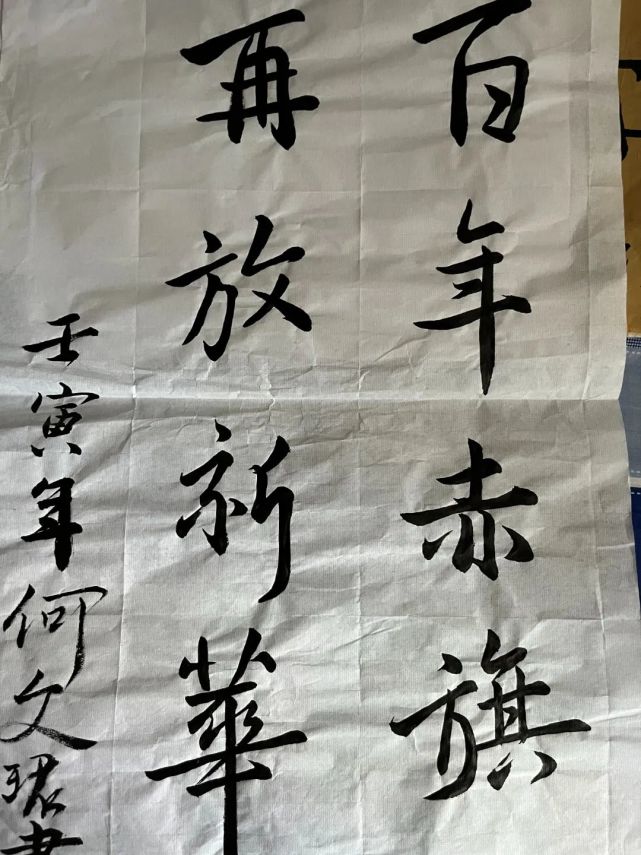 百年赤旗
再放新華
壬寅年何文珺書